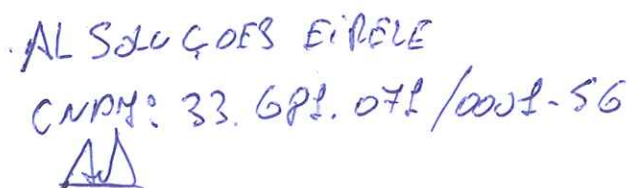 AL SOLUÇOES EIRELE
CNPJ: 33.681.071/0001-56